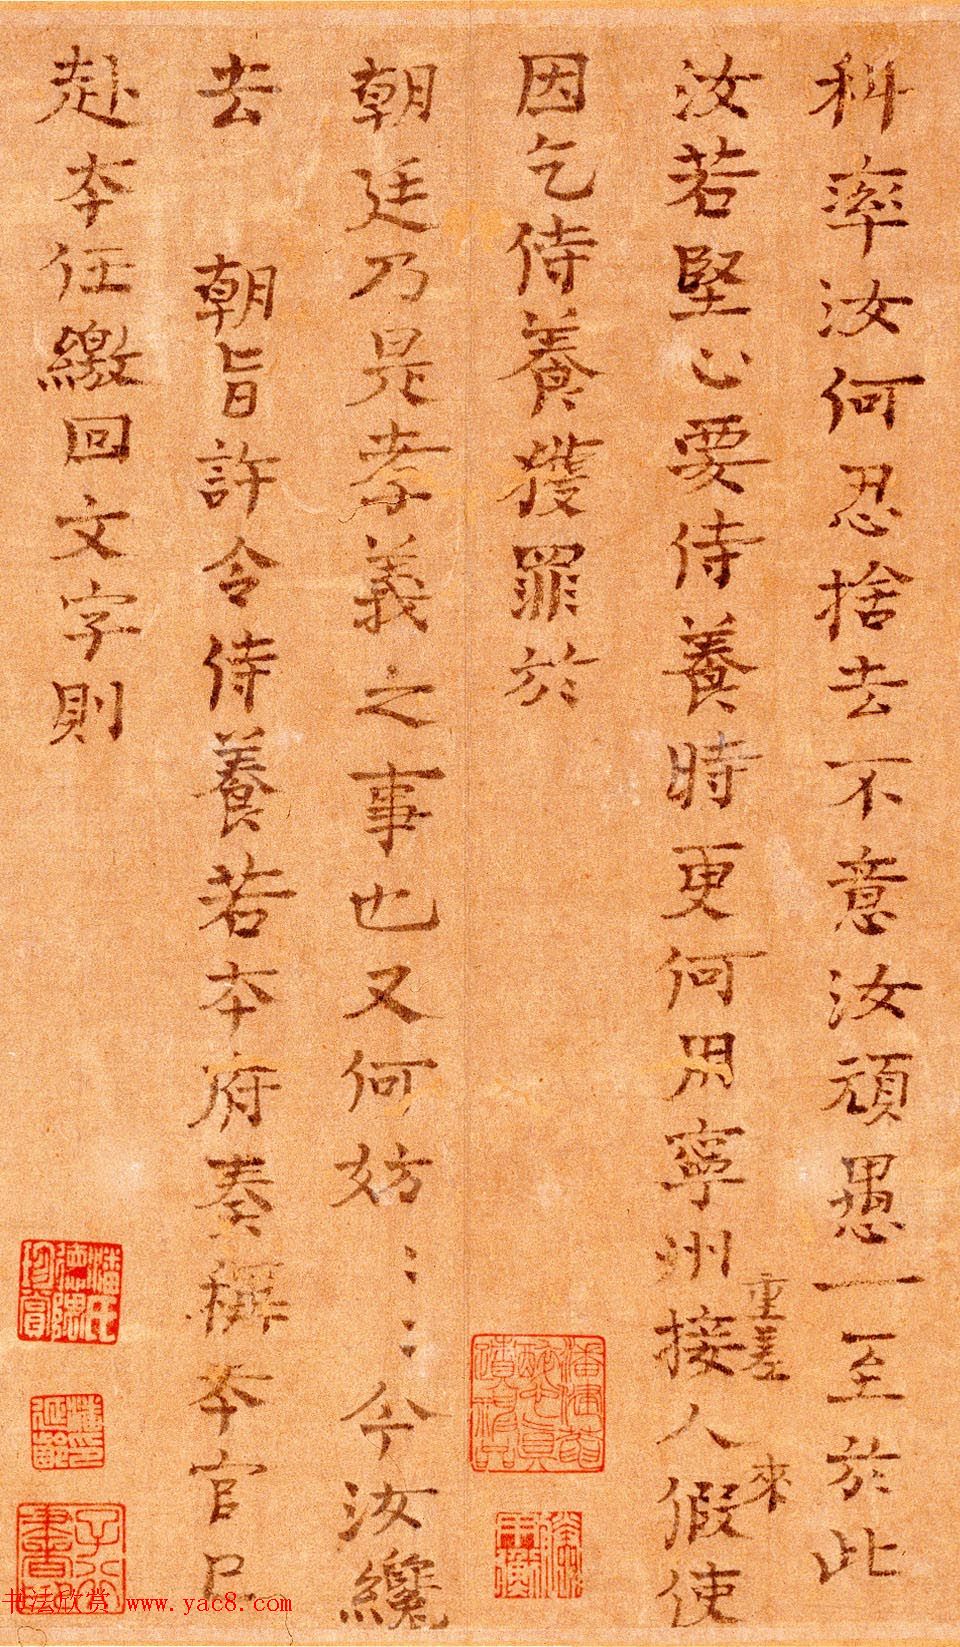 科率汝何忍捨去不意汝頑愚一至於此
汝若堅心要侍養時更何用寧州接人假使
重差
來
因乞侍養獲罪於
朝廷乃是孝義之事也又何妨〻〻今汝纔
去 朝旨許令侍養若本府奏穪本官已
赴本任繳回文字則
潘氏德隅珍賞
書法欣赏 www.yac8.com